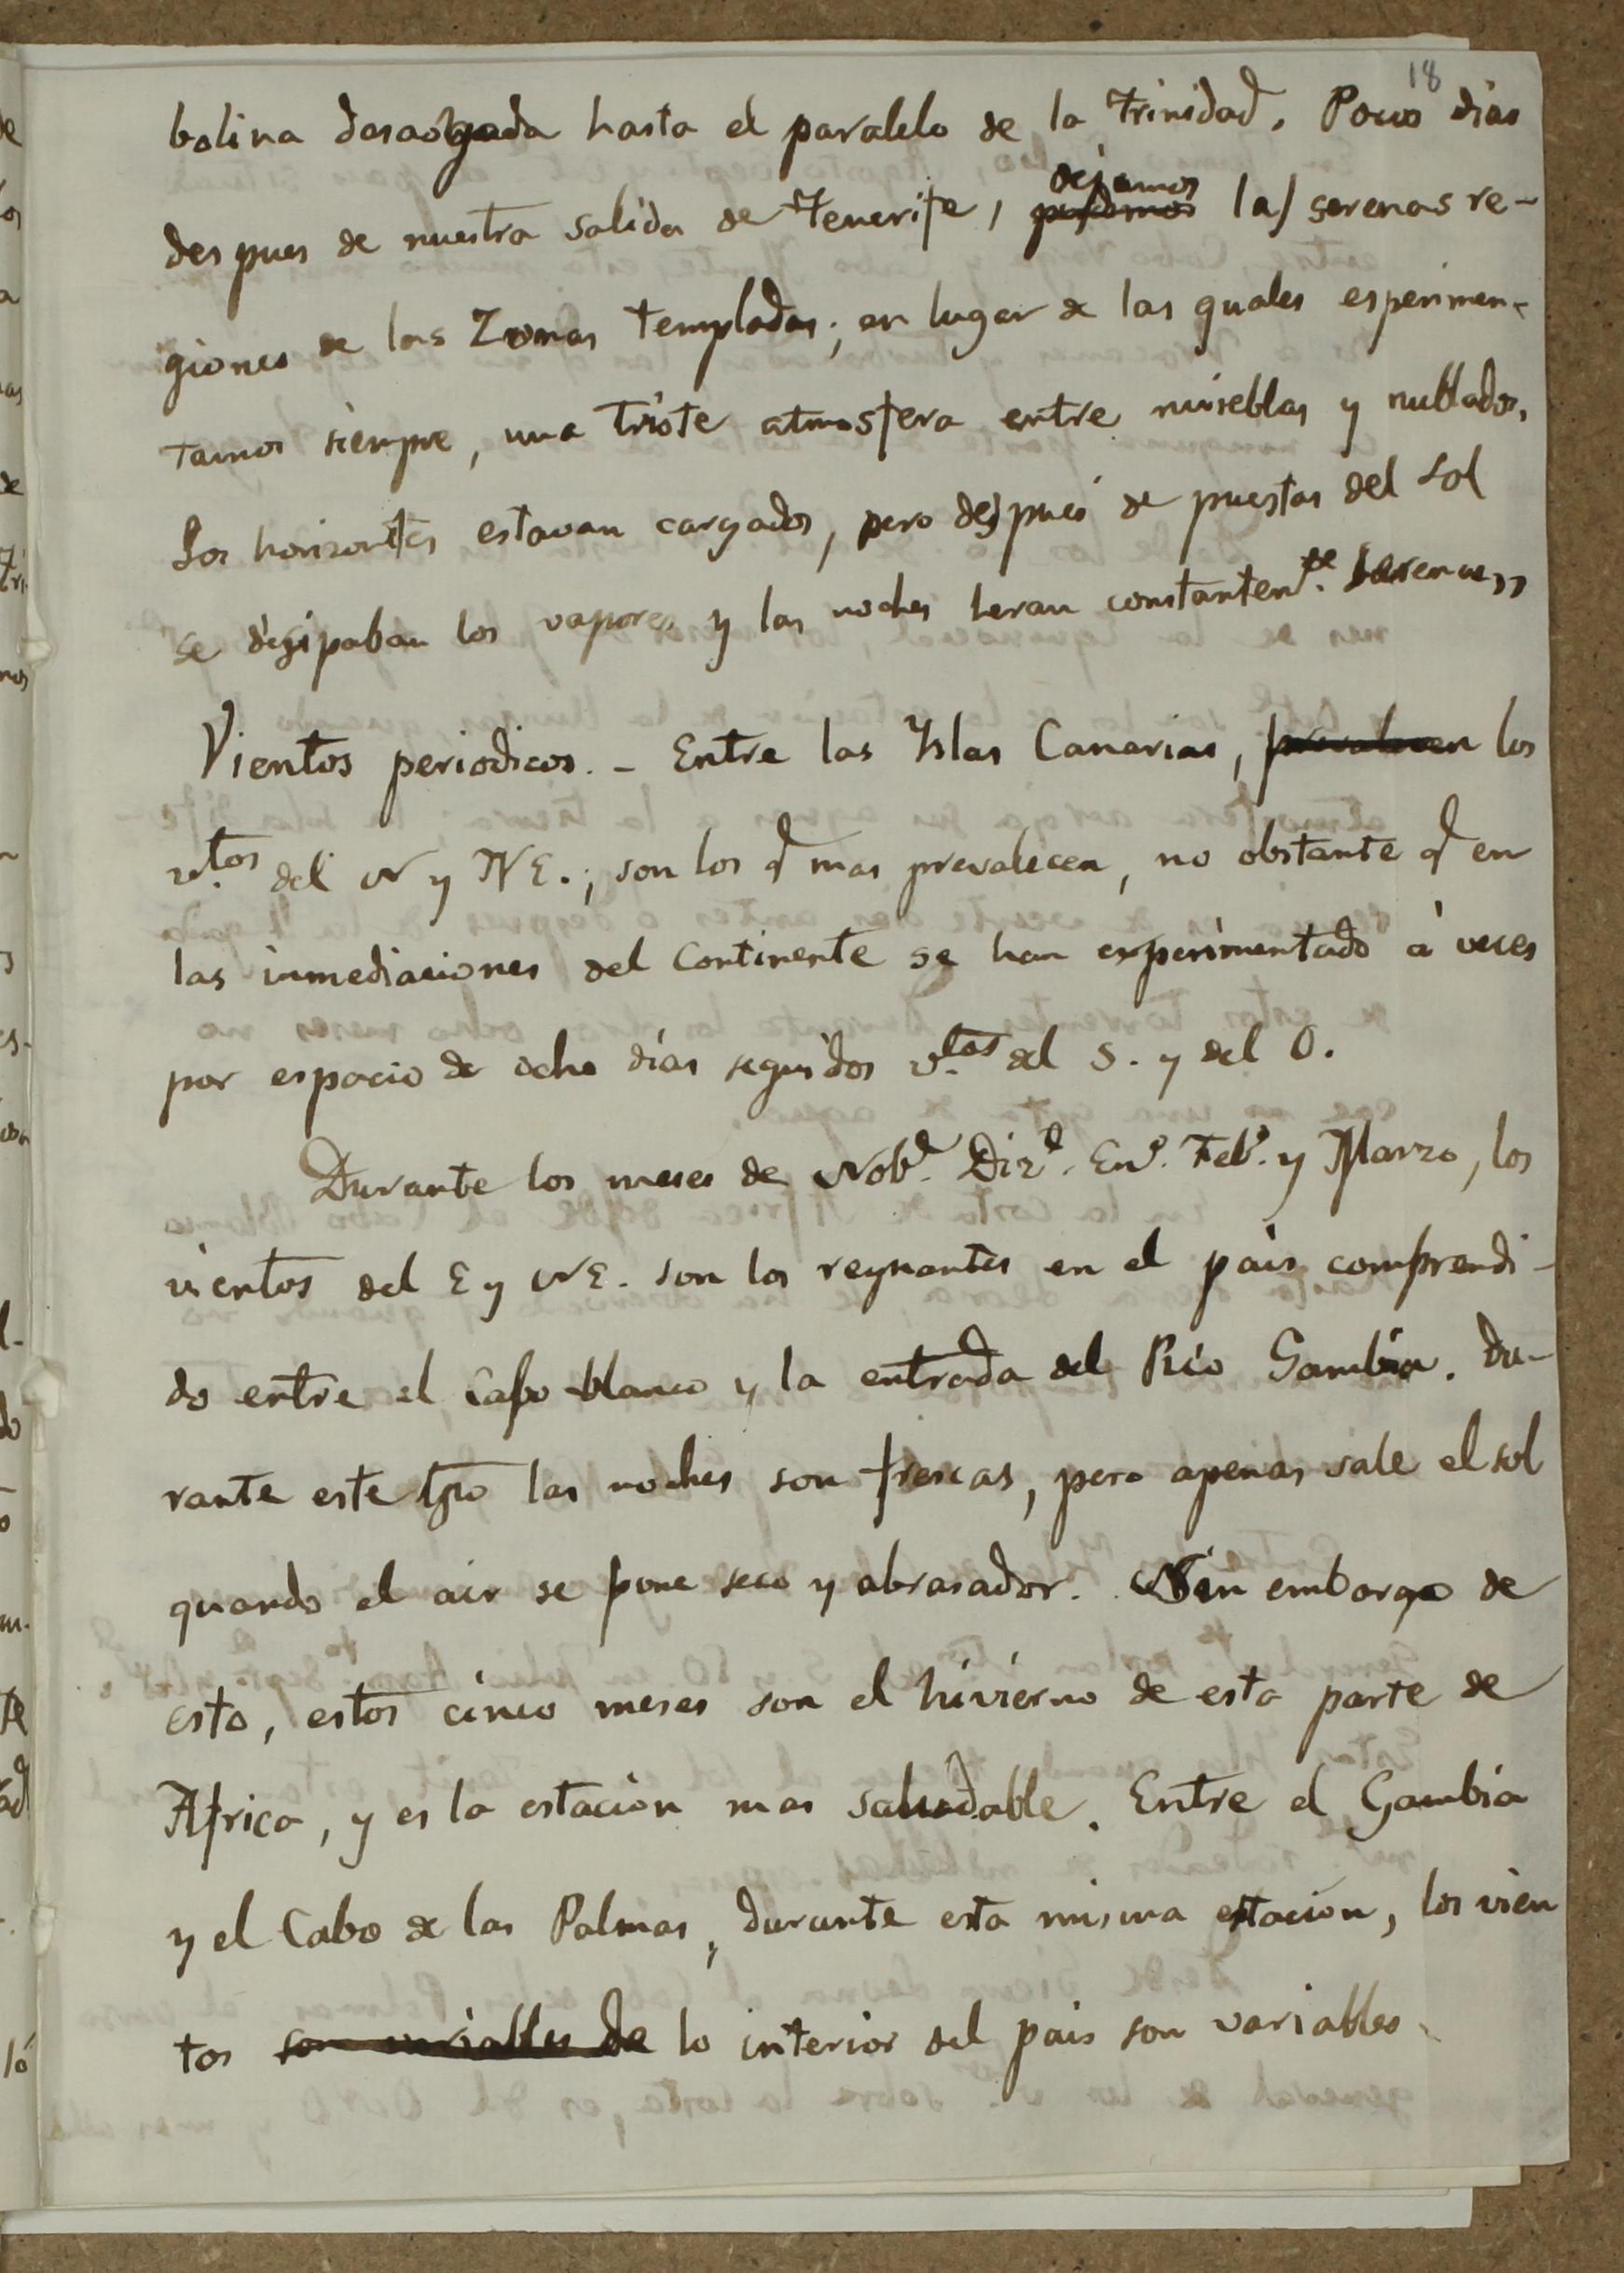 18
bolina desaogada hasta el paralelo de la Trinidad. Pocos dias
despues de nuestra salida de Tenerife, dejamos las serenas re-
giones de las Zonas templadas; en lugar de las quales esperimen-
tamos siempre, una triste atmosfera entre nuieblas y nublados,
Los horizontes estavan cargados, pero despues de puestas del sol
se disipaban los vapores y las noches heran constantente. serenas,,
Vientos periodicos. - Entre las Yslas Canarias, prevalecen los
vtos del N y NE., son los q mas prevalecen, no obstante q en
las inmediaciones del Continente se han experimentado à veces
por espacio de ocho dias seguidos vtos del S. y del O.
Durante los meses de Nobe. Dize. Eno. Febo. y Marzo, los
vientos del E y NE. son los reynantes en el pais comprendi-
do entre el Cabo blanco y la entrada del Rio Gambia. Du-
rante este tpo las noches son frescas, pero apenas sale el sol
quando el air se pone seco y abrasador. Sin embargo de
esto, estos cinco meses son el hivierno de esta parte de
Africa, y es la estacion mas saludable. Entre el Gambia
y el Cabo de las Palmas, durante esta misma estacion, los vien
tos son variables de lo interior del pais son variables.